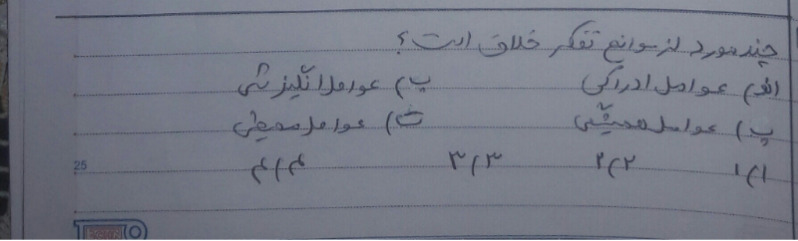 چند مورد از موانع تفکر خلاق است؟
الف) عوامل ادراکی ب) عوامل انگیزشی
پ) عوامل محیشی ت) عوامل محیطی
۱) ۱ ۲) ۲ ۳) ۳ ۴) ۴
25